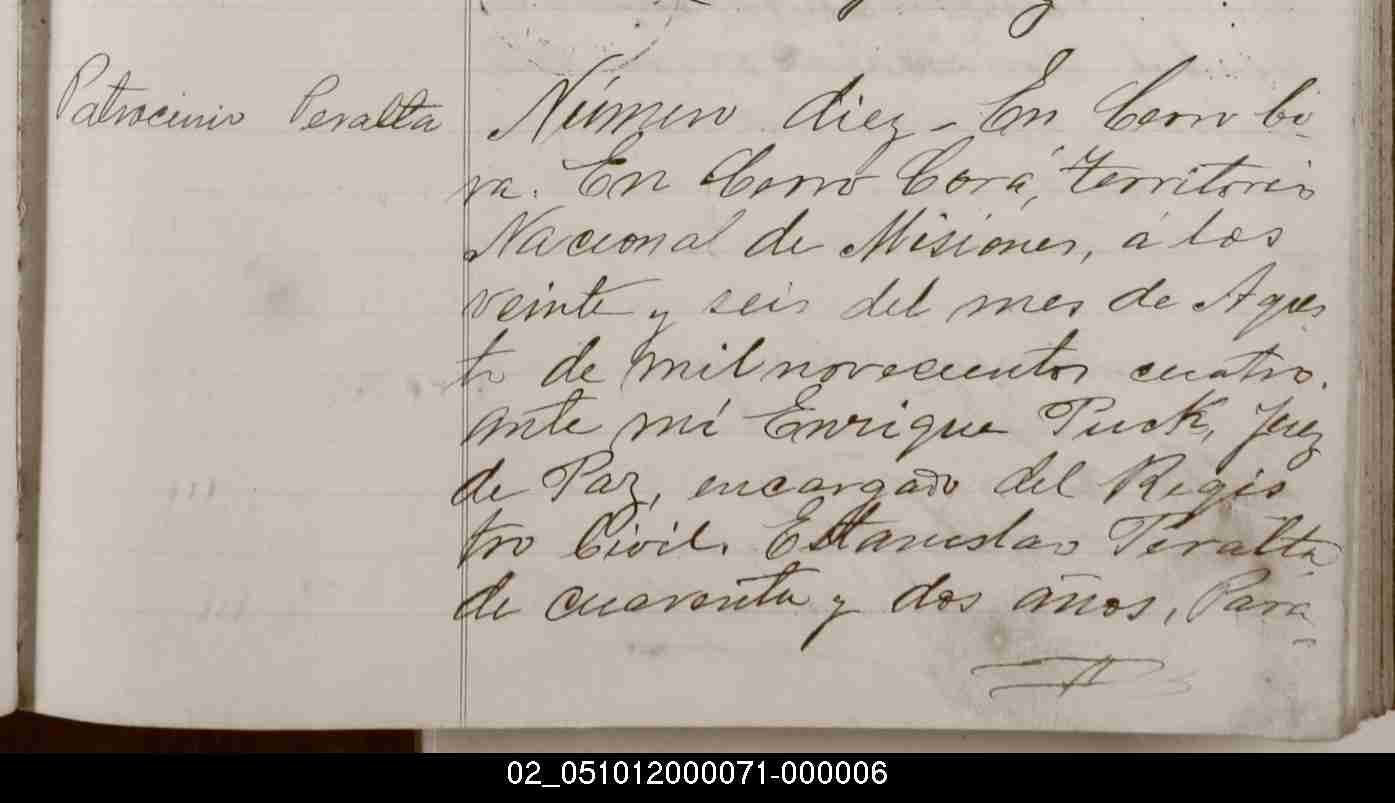 Patrocinio Peralta
Número diez - En Cerro Co-
ra. En Cerro Corá, Territorio
Nacional de Misiones, á los
veinte y seis del mes de Agos
to de mil novecientos cuatro.
ante mi Enrique Puck, Juez
de Paz, encargado del Regis
tro Civil. Estanislao Peralta
de cuarenta y dos años, Para-
02_051012000071-000006